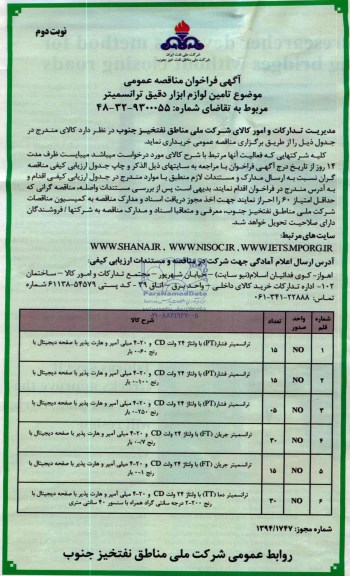 نوبت دوم
شرکت ملی نفت ایران
شرکت ملی مناطق نفت خیز جنوب
آگهی فراخوان مناقصه عمومی
موضوع تامین لوازم ابزار دقیق ترانسمیتر
مربوط به تقاضای شماره: ۹۳۰۰۰۵۵-۳۲-۴۸
مدیریت تدارکات و امور کالای شرکت ملی مناطق نفتخیز جنوب در نظر دارد کالای مندرج در
جدول ذیل را از طریق برگزاری مناقصه عمومی خریداری نماید.
کلیه شرکتهایی که فعالیت آنها مرتبط با شرح کالای مورد درخواست میباشد میبایست ظرف مدت
۱۴ روز از تاریخ درج آگهی فراخوان با مراجعه به سایتهای ذیل الذکر و چاپ جدول ارزیابی کیفی مناقصه
گران نسبت به ارسال مدارک و مستندات لازم منطبق با موارد مندرج در جدول ارزیابی کیفی اقدام و
به آدرس مندرج در فراخوان اقدام نمایند. بدیهی است پس از بررسی مستندات واصله، مناقصه گرانی که
حداقل امتیاز ۶۰ را احراز نمایند جهت اخذ مجوز دریافت اسناد و مدارک مناقصه به کمیسیون مناقصات
شرکت ملی مناطق نفتخیز جنوب، معرفی و متعاقبا اسناد و مدارک مناقصه به شرکتها / فروشندگان
دارای صلاحیت تحویل خواهد شد.
سایت‌های مرتبط:
WWW.SHANA.IR , WWW.NISOC.IR , WWW.IETS.MPORG.IR
آدرس ارسال اعلام آمادگی جهت شرکت در مناقصه و مستندات ارزیابی کیفی:
اهواز- کوی فدائیان اسلام (نیو سایت) - خیابان شهریور - مجتمع تدارکات و امور کالا - ساختمان
۱۰۲- اداره تدارکات خرید کالای داخلی - واحد برق - اتاق ۳۹ - کد پستی ۵۴۵۷۹-۶۱۱۳۸ شماره
تماس: ۲۲۸۸۸-۳۴۱-۰۶۱
ParsNamadData
شماره قلم واحد صدور تعداد شرح کالا
۱ NO ۱۵ ترانسمیتر فشار(PT) با ولتاژ ۲۴ ولت CD و ۲۰-۴ میلی آمپر و هارت پذیر با صفحه دیجیتال با
رنج ۶۰-۰ بار
۲ NO ۱۵ ترانسمیتر فشار(PT) با ولتاژ ۲۴ ولت CD و ۲۰-۴ میلی آمپر و هارت پذیر با صفحه دیجیتال با
رنج ۱۰۰-۰ بار
۳ NO ۰۵ ترانسمیتر فشار(PT) با ولتاژ ۲۴ ولت CD و ۲۰-۴ میلی آمپر و هارت پذیر با صفحه دیجیتال با
رنج ۲۵۰-۰ بار
۴ NO ۳۰ ترانسمیتر جریان (FT) با ولتاژ ۲۴ ولت CD و ۲۰-۴ میلی آمپر و هارت پذیر با صفحه دیجیتال با
رنج ۰/۷-۰ بار
۵ NO ۱۵ ترانسمیتر جریان (FT) با ولتاژ ۲۴ ولت CD و ۲۰-۴ میلی آمپر و هارت پذیر با صفحه دیجیتال با
رنج ۱-۰ بار
۶ NO ۳۰ ترانسمیتر دما (TT) با ولتاژ ۲۴ ولت CD و ۲۰-۴ میلی آمپر و هارت پذیر با صفحه دیجیتال با
رنج ۲۰۰-۰ درجه سانتی گراد همراه با سنسور ۴۰ سانتی متری
شماره مجوز: ۱۳۹۴/۱۷۴۷
روابط عمومی شرکت ملی مناطق نفتخیز جنوب